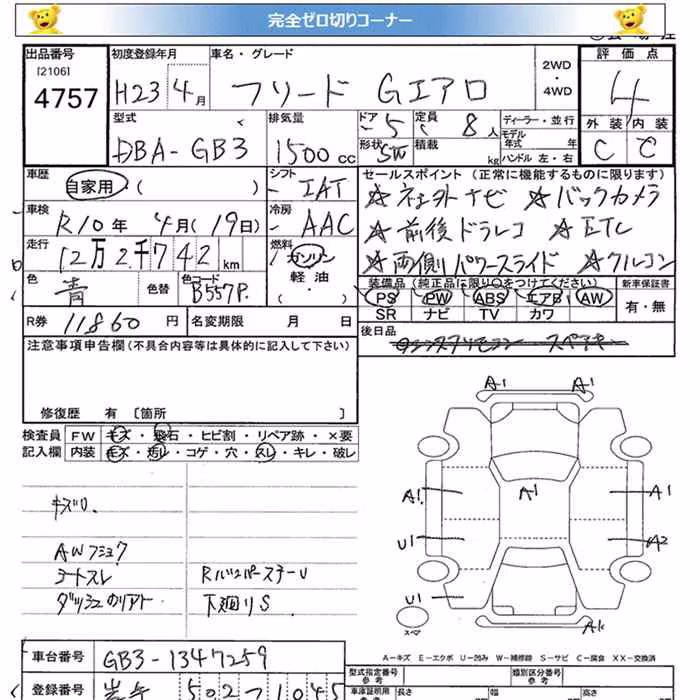 完全ゼロ切りコーナー
出品番号
[2106]
4757
初度登録年月
H23 4月
車名・グレード
フリード Gエアロ
2WD
・
4WD
評価点
4
外装 内装
C C
型式
DBA-GB3
排気量
1500cc
ドア 5
形状 SW
定員 8人
積載 kg
ディーラー・並行
モデル
年式 年
ハンドル 左・右
車歴
自家用 ( )
シフト
IAT
セールスポイント (正常に機能するものに限ります)
☆ナビ ☆バックカメラ
☆前後ドラレコ ☆ETC
☆両側パワースライド ☆クルコン
車検
R10年 4月(19日)
冷房
AAC
走行
12万2千742km
燃料
ガソリン
軽油
( ・ )
色
青
色替
色コード
B557P.
装備品 (純正品に限り○をつけてください)
PS PW ABS エアB AW
SR ナビ TV カワ
新車保証書
有・無
R券 11860円
名変期限 月 日
後日品
スペアキー
注意事項申告欄(不具合内容等は具体的に記入して下さい)
修復歴 有 [箇所 ]
検査員
記入欄
FW キズ・飛石・ヒビ割・リペア跡・×要
内装 キズ・汚レ・コゲ・穴・スレ・キレ・破レ
キズU.
AWフショク
シートスレ
R
下廻りS
A1 A1
A1. A1 A1
U1 A2
U1
スペア
A-キズ E-エクボ U-凹み W-補修跡 S-サビ C-腐食 XX-交換済
車台番号 GB3-1347259
登録番号 502 1045
型式指定番号
参考
類別区分番号
参考
車庫証明用
参考
長さ
幅
高さ